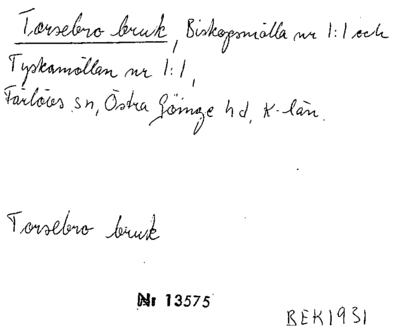 Torsebro bruk, Biskopsmölla nr 1:1 och
Tyskamöllan nr 1:1,
Färlövs sn, Östra Göinge hd, K-län.
Torsebro bruk
Nr 13575
BEK1931